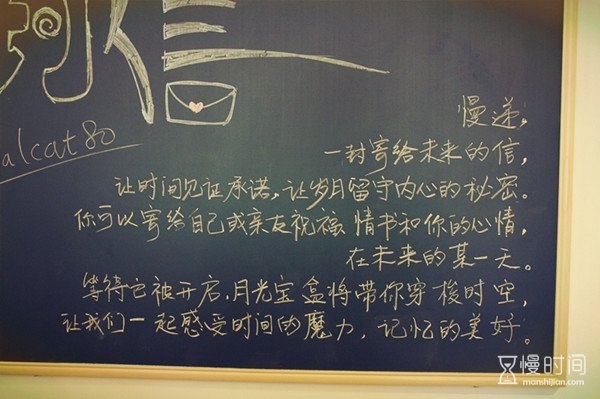 信
alcat80
慢递,
一封寄给未来的信,
让时间见证承诺,让岁月留守内心的秘密。
你可以寄给自己或亲友祝福、情书和你的心情,
在未来的某一天。
等待它被开启,月光宝盒将带你穿梭时空,
让我们一起感受时间的魔力,记忆的美好。
慢时间
manshijian.com